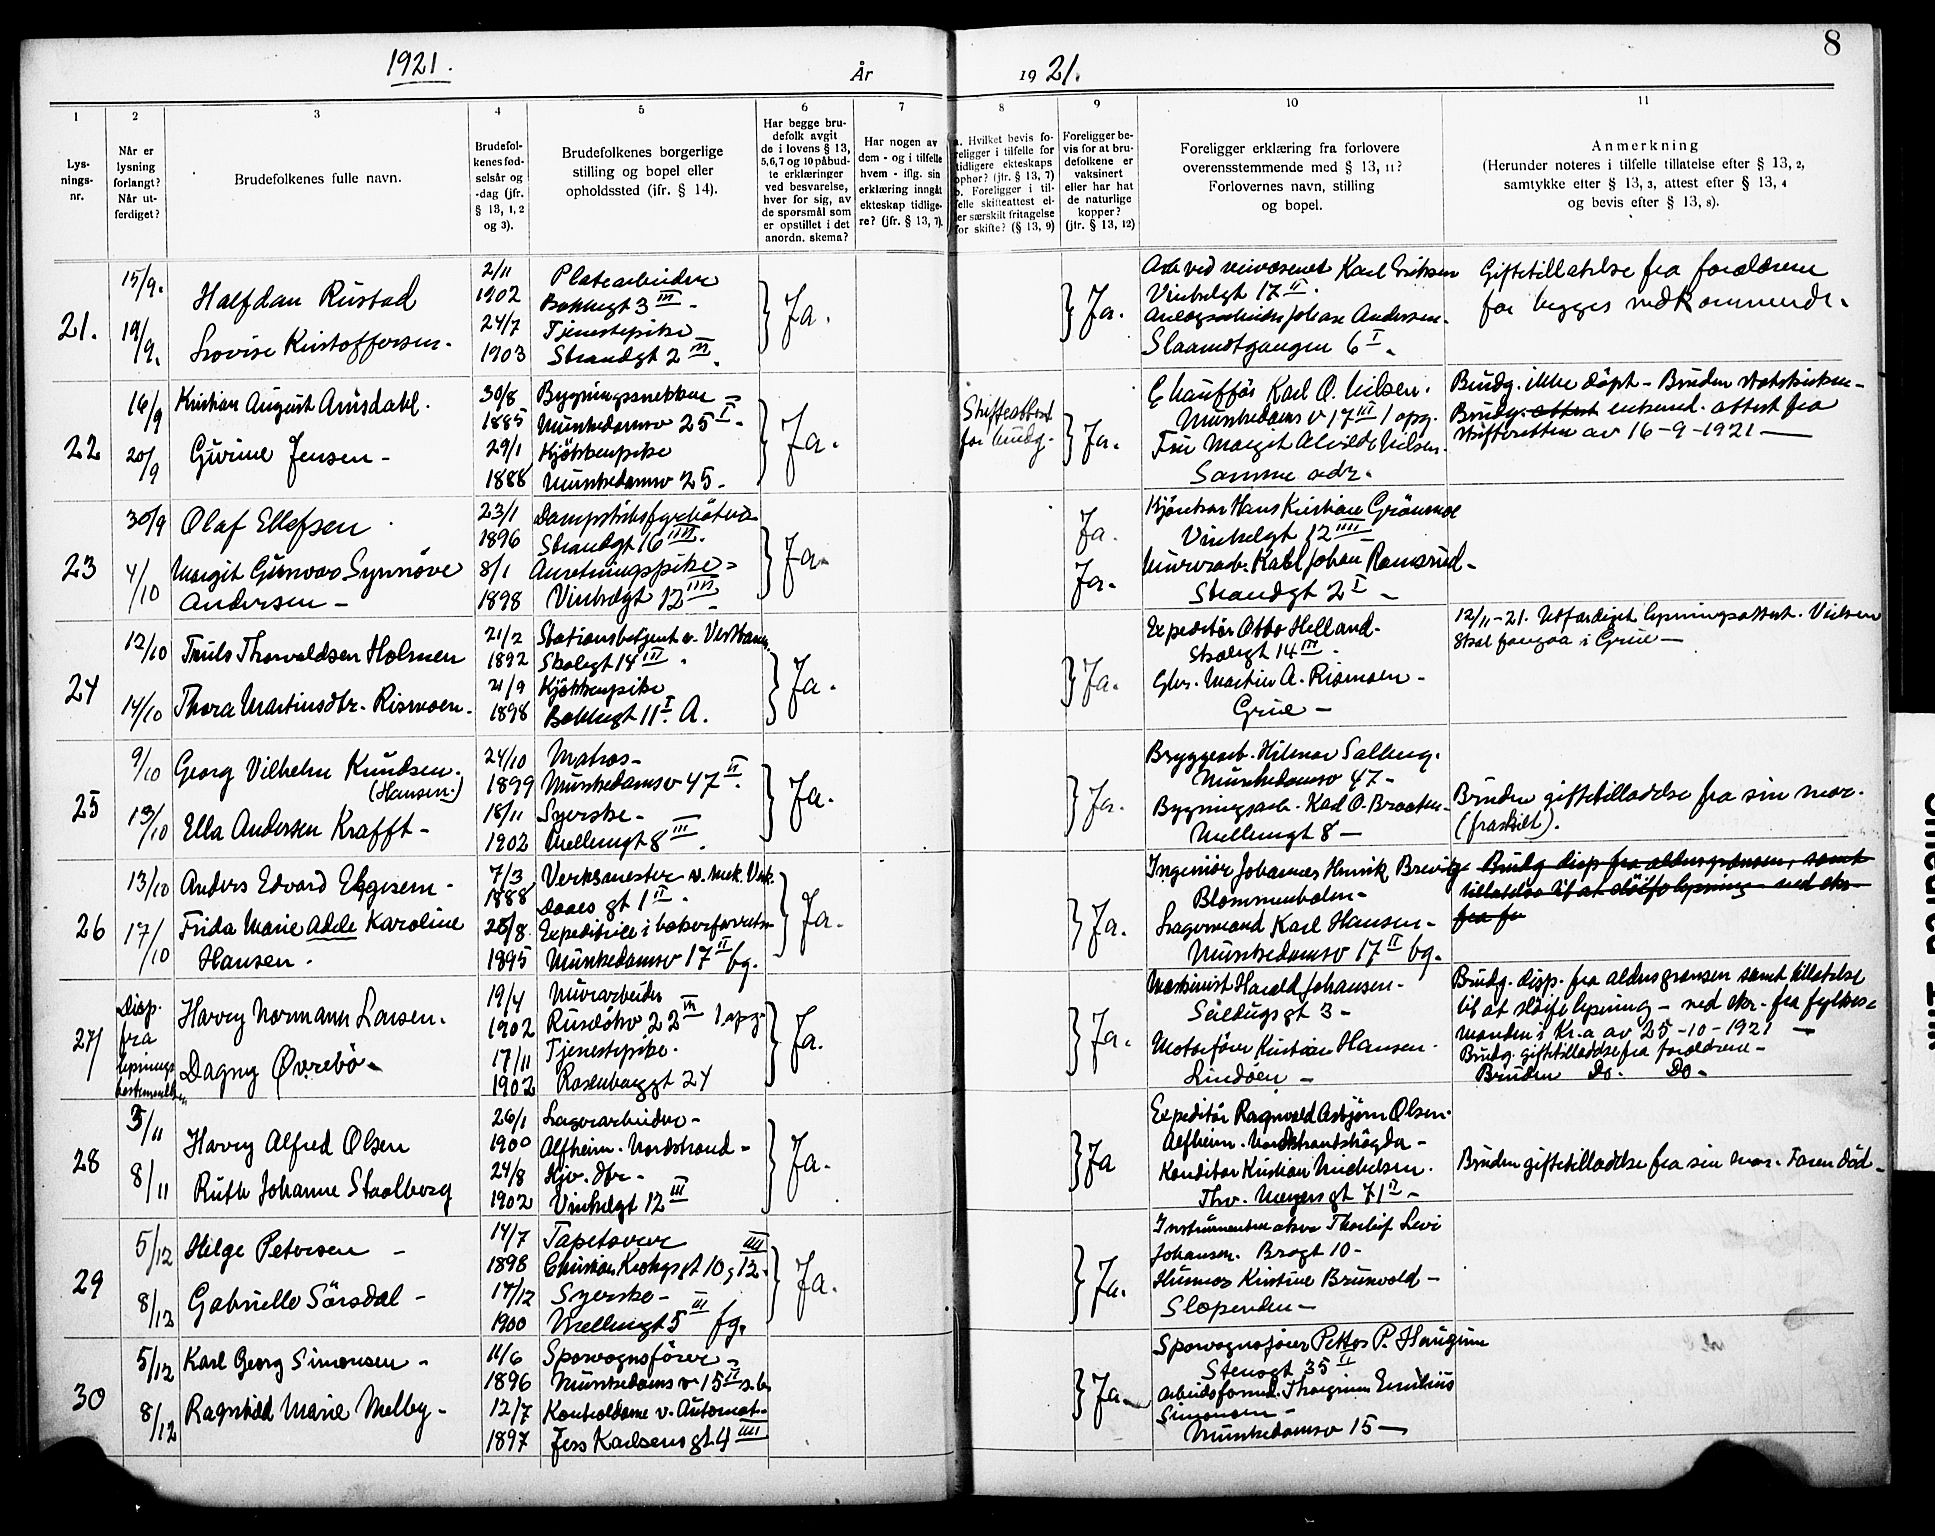 1921.
År
19 21.
8
1
2
3
4
5
6
7
8
9
10
11
Lys-
nings-
nr.
Når er
lysning
forlangt?
Når ut-
ferdiget?
Brudefolkenes fulle navn.
Brudefol-
kenes fød-
selsår og
-dag (jfr.
§ 13, 1, 2
og 3).
Brudefolkenes borgerlige
stilling og bopel eller
opholdssted (jfr. § 14).
Har begge bru-
defolk avgit
de i lovens § 13,
5,6,7 og 10 påbud-
te erklæringer
ved besvarelse,
hver for sig, av
de spørsmål som
er opstillet i det
anordn. skema?
Har nogen av
dem - og i tilfelle
hvem - iflg. sin
erklæring inngått
ekteskap tidlige-
re? (jfr. § 13, 7).
a. Hvilket bevis fo-
religger i tilfelle for
tidligere ekteskaps
ophør? (jfr. § 13, 7)
b. Foreligger i til-
felle skifteattest el-
ler særskilt fritagelse
for skifte? (§ 13, 9)
Foreligger be-
vis for at bru-
defolkene er
vaksinert
eller har hat
de naturlige
kopper?
(jfr. § 13, 12)
Foreligger erklæring fra forlovere
overensstemmende med § 13, 11?
Forlovernes navn, stilling
og bopel.
Anmerkning
(Herunder noteres i tilfelle tillatelse efter § 13, 2,
samtykke efter § 13, 3, attest efter § 13, 4
og bevis efter § 13, 8).
21.
15/9.
19/9.
Halfdan Rustad
Lovise Kristoffersen.
2/11
1902
24/7
1903
Platearbeider
Bakkegt 3 III.
Tjenestepike
Strandgt 2 III.
Ja.
Ja.
Arb ved veivæsenet Karl Eriksen
Vinkelgt 17 II.
Anlægsarbeider Johan Andersen.
Slaamotgangen 6 I.
Giftetillatelse fra forældrene
for begges vedkommende.
22
16/9
20/9
Kristian August Arnsdahl.
Gurine Jensen -
30/8
1885
29/1
1888
Bygningssnekker
Munkedamsv 25 I.
Kjøkkenpike
Munkedamsv 25.
Ja.
Skifteattest
for brudg.
Ja.
Chauffør Karl O. Nilsen.
Munkedams v 17 III 1 opg.
Fru Margit Alvilde Nilsen.
Samme adr.
Brudg. ikke døpt - Bruden statskirken -
Brudg. attest enkemd. attest fra
skifteretten av 16-9-1921 -
23
30/9
4/10
Olaf Ellefsen
Margit Gunvor Synnøve
Andersen -
23/1
1896
8/1
1898
Dampskibsfyrbøter
Strandgt 16 IIII.
Anretningspike -
Vinkelgt 12 IIII
Ja.
Ja.
Ja.
Kjørekar Hans Kristian Grønmoe
Vinkelgt 12 IIII
Murerarb. Karl Johan Ramsrud -
Strandgt 2 I -
24
12/10
14/10
Truls Thorvaldsen Holmen
Thora Martinsdtr. Rismoen.
21/2
1892
21/9
1898
Stationsbetjent v. Vestbanen
Skolegt 14 III.
Kjøkkenpike
Bakkegt 11 I. A.
Ja.
Ja.
Expeditør Otto Helland.
Skolegt 14 III.
Gbr. Martin A. Rismoen -
Grue -
12/11-21. Utfærdiget lysningsattest. Vielsen
skal foregaa i Grue -
25
9/10
13/10
Georg Vilhelm Knudsen.
(Hansen.)
Ella Andersen Krafft -
24/10
1899
18/11
1902
Matros -
Munkedamsv 47 II.
Syerske -
Mellumgt 8 III.
Ja.
Ja.
Bryggearb. Hilmar Salberg.
Munkedamsv 47 -
Bygningsarb. Karl O. Braaten -
Mellumgt 8 -
Bruden giftetilladelse fra sin mor.
(fraskilt).
26
13/10
17/10
Anders Edvard Eggesen -
Frida Marie Adele Karoline
Hansen.
7/3
1888
25/8
1895
Verksmester v. mek. Verk.
Daaes gt 1 II.
Expeditrice i bakerforretn
Munkedamsv 17 II bg.
Ja.
Ja.
Ingeniør Johannes Henrik Brevig
Blommenholm -
Lagermand Karl Hansen -
Munkedamsv 17 II bg.
Brudg disp fra aldersgrænsen, samt
tillatelse til at sløife lysning - ved skr
fra fy
27/
Disp.
fra
lysnings
bestemmelsen
Harry Normann Larsen.
Dagny Øvrebø -
19/4
1902
17/11
1902
Murarbeider
Ruseløkv 22 III 1 opg.
Tjenestepike.
Rosenborggt 24
Ja.
Ja.
Maskinist Harald Johansen -
Seildugsgt 3 -
Motorfører Kristian Hansen.
Lindøen -
Brudg. disp. fra aldersgrænsen samt tillatelse
til at sløife lysning - ved skr. fra fylkes-
manden i Kr.a av 25-10-1921 -
Brudg. giftetilladelse fra forældrene -
Bruden Do. Do -
28
3/11
8/11
Harry Alfred Olsen
Ruth Johanne Staalberg
26/1
1900
24/8
1902
Lagerarbeider -
Alfheim. Nordstrand -
Hjv. dtr -
Vinkelgt 12 III
Ja.
Ja
Expeditør Ragnvald Asbjørn Olsen.
Alfheim. Nordstrandshøgda -
Konditor Kristian Michelsen.
Thv. Meyers gt 71 II -
Bruden giftetilladelse fra sin mor. Faren død -
29
5/12
8/12
Helge Petersen -
Gabrielle Sørsdal -
14/7
1898
17/12
1900
Tapetserer
Christian Krohgs gt 10, 12. IIII
Syerske -
Mellumgt 5 III fg.
Ja.
Ja.
Instrumentmaker Thorleif Levi
Johansen. Brogt 10 -
Husmor Kristine Brunvold -
Slependen -
30
5/12
8/12
Karl Georg Simensen -
Ragnhild Marie Melby -
11/6
1896
12/7
1897
Sporvognsfører -
Munkedams v 15 II s.b.
Kontroldame v. Automat -
Jess Karlsens gt. 4 IIII
Ja -
Sporvognsfører Petter P. Haugrim
Stensgt 35 II
Arbeidsformd. Thorgrim Emilius
Simensen -
Munkedamsv 15 -